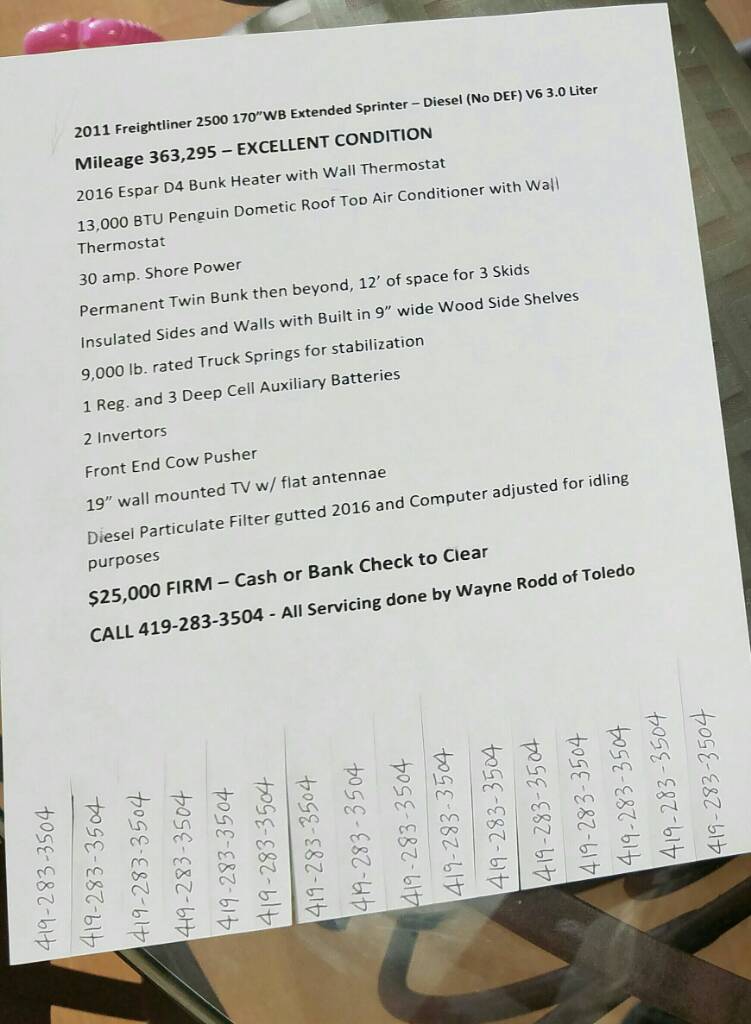 2011 Freightliner 2500 170”WB Extended Sprinter – Diesel (No DEF) V6 3.0 Liter
Mileage 363,295 – EXCELLENT CONDITION
2016 Espar D4 Bunk Heater with Wall Thermostat
13,000 BTU Penguin Dometic Roof Top Air Conditioner with Wall
Thermostat
30 amp. Shore Power
Permanent Twin Bunk then beyond, 12’ of space for 3 Skids
Insulated Sides and Walls with Built in 9” wide Wood Side Shelves
9,000 lb. rated Truck Springs for stabilization
1 Reg. and 3 Deep Cell Auxiliary Batteries
2 Invertors
Front End Cow Pusher
19” wall mounted TV w/ flat antennae
Diesel Particulate Filter gutted 2016 and Computer adjusted for idling
purposes
$25,000 FIRM – Cash or Bank Check to Clear
CALL 419-283-3504 - All Servicing done by Wayne Rodd of Toledo
419-283-3504
419-283-3504
419-283-3504
419-283-3504
419-283-3504
419-283-3504
419-283-3504
419-283-3504
419-283-3504
419-283-3504
419-283-3504
419-283-3504
419-283-3504
419-283-3504
419-283-3504
419-283-3504